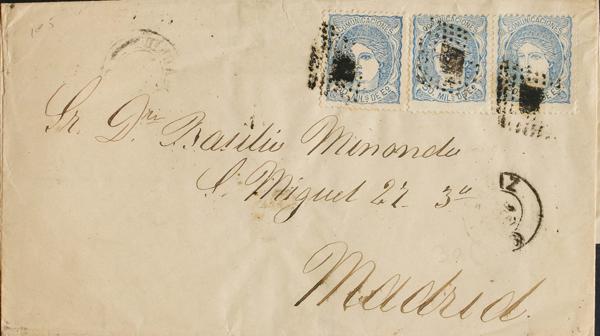 105
COMUNICACIONES COMUNICACIONES COMUNICACIONES
50 MILS DE Eº 50 MILS DE Eº 50 MILS DE Eº
Sr. Dn. Basilio Minondo
S. Miguel 27. 3º
IZ
Madrid.